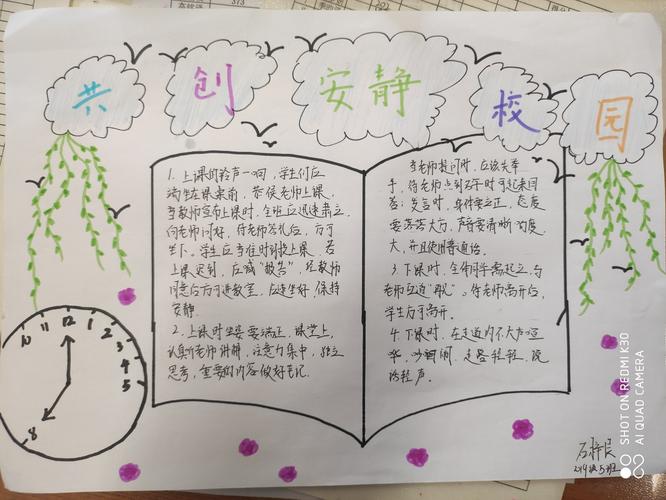 共创安静校园
1.上课的铃声一响,学生们应
端坐在课桌前,恭候老师上课,
当教师宣布上课时,全班应迅速肃立,
向老师问好,待老师答礼后,方可
坐下。学生应当准时到校上课,若
上课迟到,应喊“报告”,经教师
同意后方可进教室,应选坐好,保持
安静.
2.上课时坐姿要端正,课堂上,
认真听老师讲解,注意力集中,独立
思考,重要的内容做好笔记.
当老师提问时,应该先举
手,待老师点到名字时可起来回
答;发言时,身体要立正,态度
要落落大方,声音要清晰响度
大,并且使用普通话.
3.下课时,全体同学需起立,与
老师互道“再见”。待老师离开后,
学生方可离开.
4.下课时,在走道内不大声喧
哗,吵吵闹闹,走路轻轻,说
话轻声.
10 11 12 1 2 3 4 5 8
2019级5班
SHOT ON REDMI K30
AI QUAD CAMERA